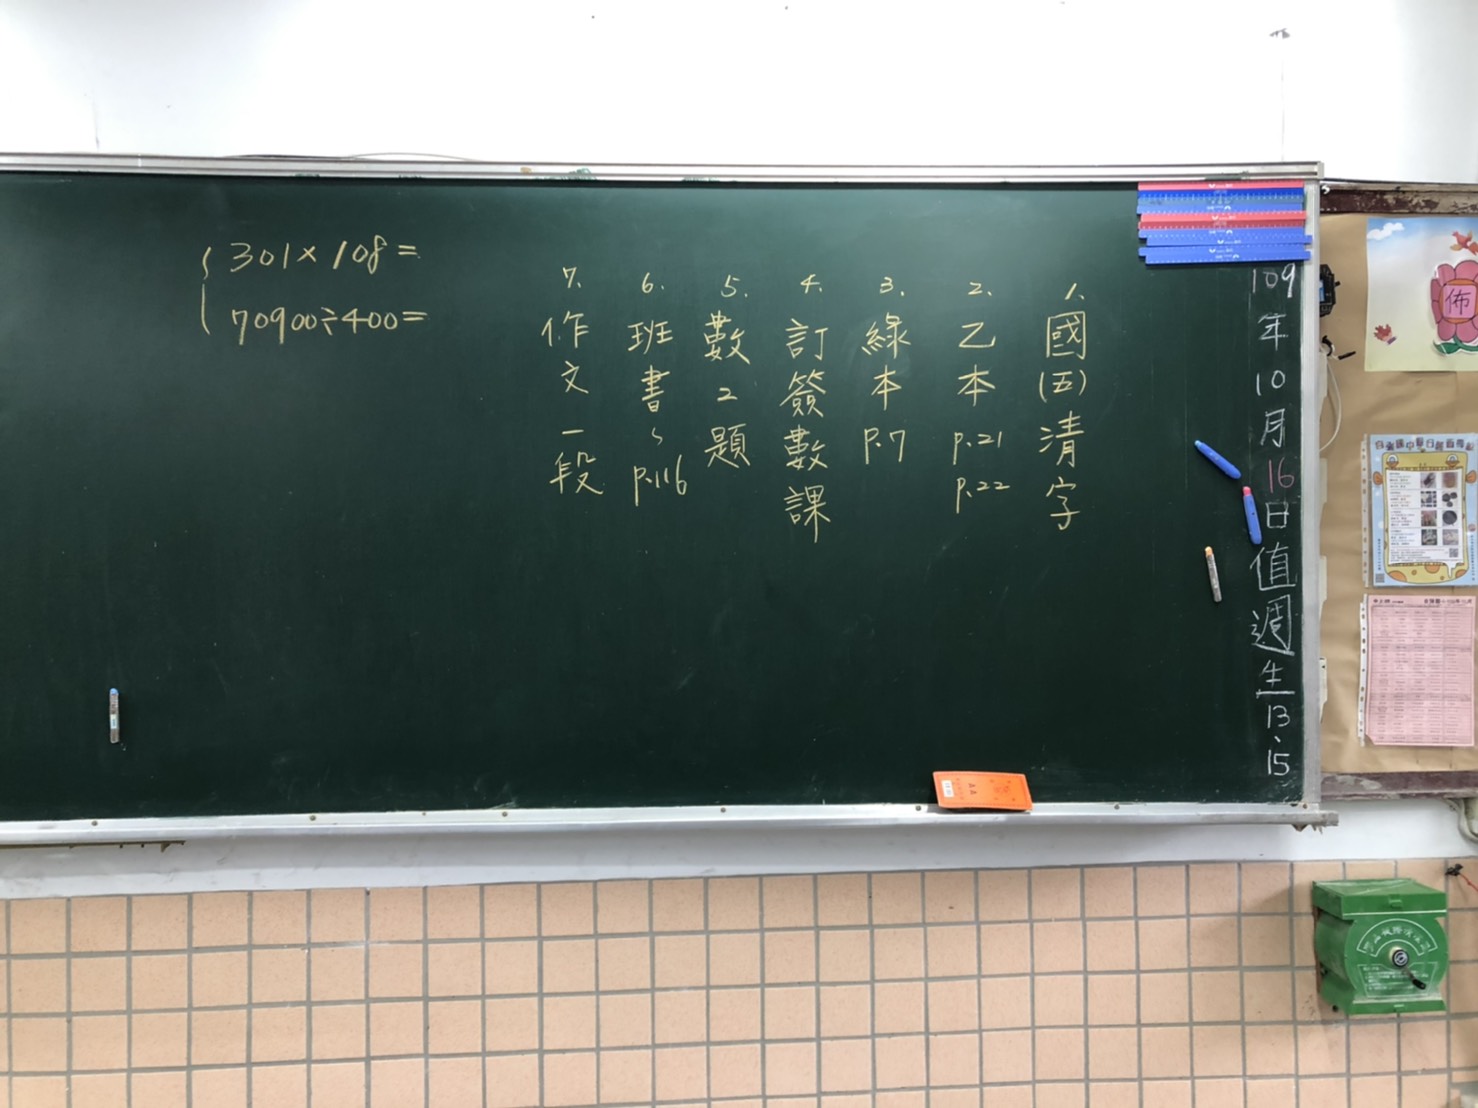 109年10月16日值週生13、15
1.國(五)清字
2.乙本p.21
p.22
3.綠本p.7
4.訂簽數課
5.數2題
6.班書~p.116
7.作文一段
301×108=
70900÷400=
佈
AA